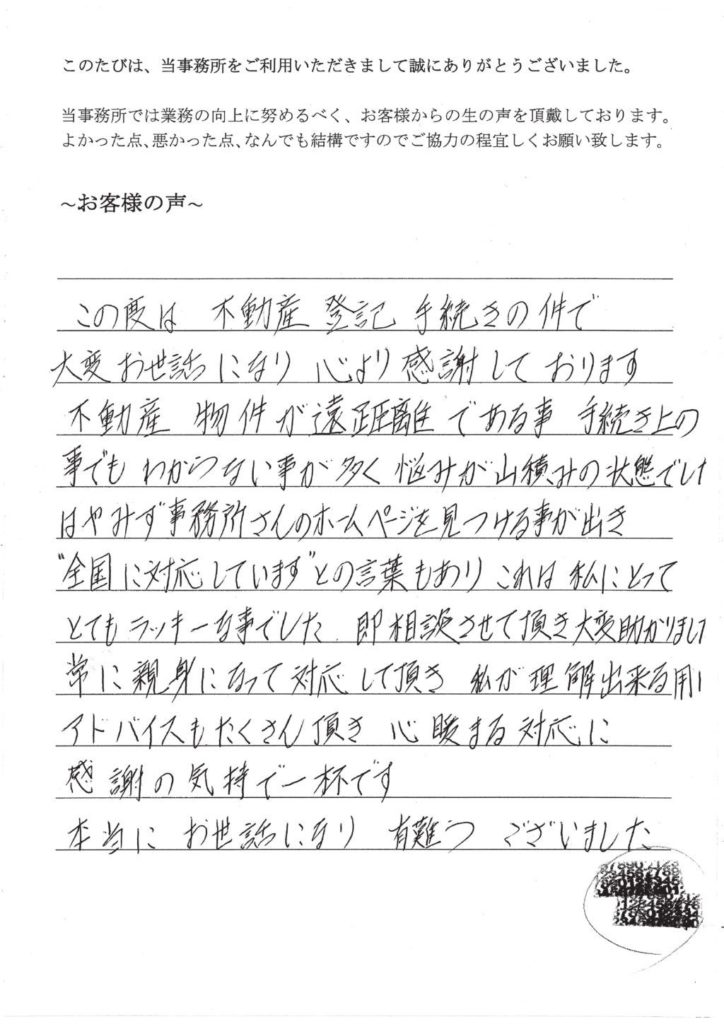 このたびは、当事務所をご利用いただきまして誠にありがとうございました。
当事務所では業務の向上に努めるべく、お客様からの生の声を頂戴しております。
よかった点、悪かった点、なんでも結構ですのでご協力の程宜しくお願い致します。
~お客様の声~
この度は 不動産 登記 手続きの件で
大変お世話になり 心より 感謝して おります
不動産 物件が遠距離である事 手続き上の
事でも わからない事が多く 悩みが山積みの状態でし
はやみず事務所さんのホームページを見つける事が出き
"全国に対応しています"との言葉もあり これは 私にとって
とてもラッキーな事でした 即相談させて頂き大変助かりまし
常に親身になって対応して頂き 私が理解出来る用に
アドバイスもたくさん頂き 心暖まる対応に
感謝の気持で一杯です
本当に お世話になり 有難う ございました